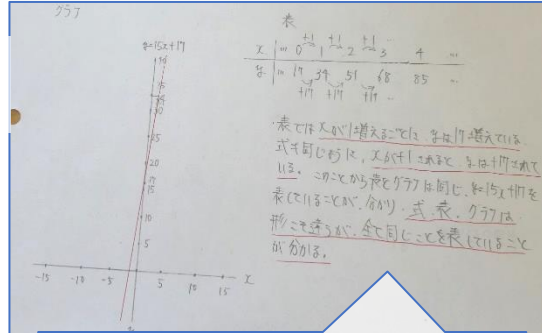 グラフ
y=15x+17
20
15
10
5
-15 -10 -5 5 10 15 x
表
+1 +1 +1
x … 0 1 2 3 4 …
y … 17 34 51 68 85 …
+17 +17 +17 …
・表ではxが1増えるごとに、yは17増えている。
式も同じように、xが+1されると yは+17されて
いる。このことから表とグラフは同じ、y=15x+17を
表していることが、分かり、式、表、グラフは
形こそ違うが、全て同じことを表していること
が分かる。